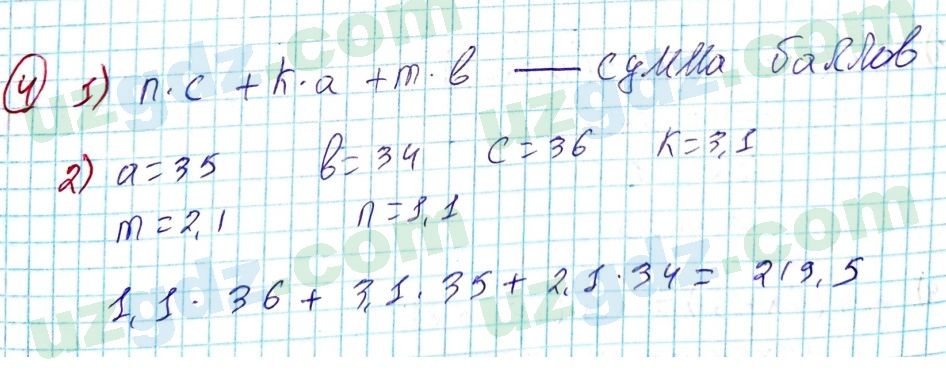 4) 1) n·c + k·a + m·b — сумма баллов
2) a = 35 b = 34 c = 36 k = 3,1
m = 2,1 n = 1,1
1,1 · 36 + 3,1 · 35 + 2,1 · 34 = 219,5
uzgdz.com uzgdz.com
uzgdz.com uzgdz.com